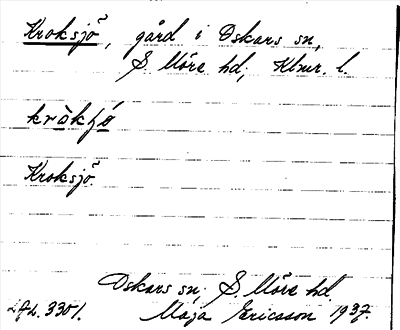 Kroksjö, gård i Oskars sn,
S. Möre hd, Klmr. l.
kròkʃø
Kroksjö.
Oskars sn, S. Möre hd.
Maja Ericsson 1937.